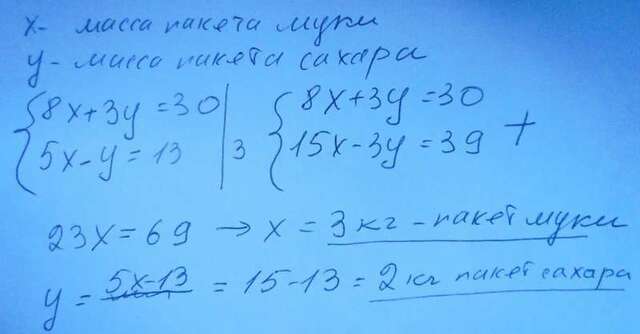 x- масса пакета муки
y- масса пакета сахара
{8x+3y=30 | {8x+3y=30
{5x-y=13 | 3 {15x-3y=39 +
23x=69 → x = 3 кг - пакет муки
y = 5x-13 = 15-13 = 2 кг пакет сахара